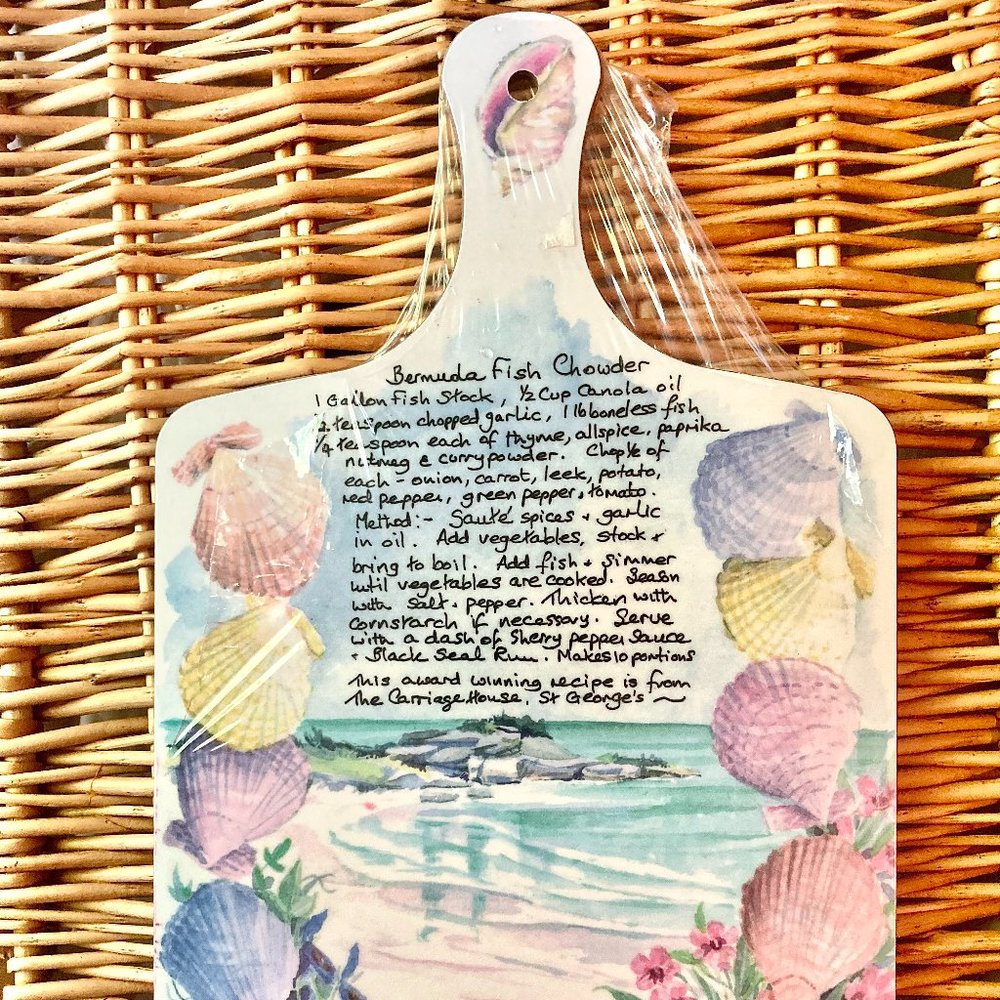 Bermuda Fish Chowder
1 Gallon Fish Stock, ½ Cup Canola oil
2 teaspoon chopped garlic, 1 lb boneless fish
¼ teaspoon each of thyme, allspice, paprika
nutmeg & curry powder. Chop ½ of
each - onion, carrot, leek, potato,
red pepper, green pepper, tomato.
Method:- Sauté spices + garlic
in oil. Add vegetables, stock +
bring to boil. Add fish + simmer
until vegetables are cooked. Season
with salt + pepper. Thicken with
cornstarch if necessary. Serve
with a dash of Sherry pepper Sauce
+ Black Seal Rum. Makes 10 portions
This award winning recipe is from
The Carriage House, St George's ~